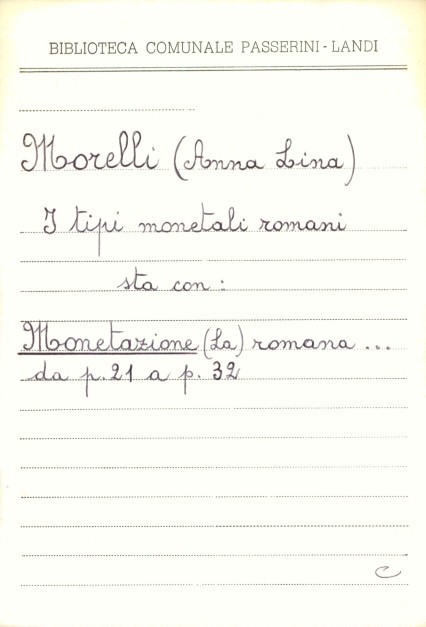 BIBLIOTECA COMUNALE PASSERINI - LANDI
Morelli (Anna Lina)
I tipi monetali romani
sta con :
Monetazione (La) romana ...
da p. 21 a p. 32
c